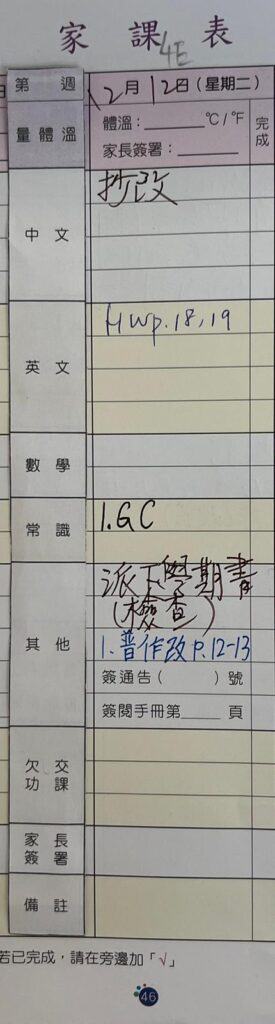 家課表
4E
第 週 12月12日(星期二)
量體溫 體溫:______℃/℉ 完成
家長簽署:______
中文 抄改
英文 HWp.18,19
數學
常識 1.GC
其他 派下學期書
(檢查)
1.普作改 P.12-13
簽通告( )號
簽閱手冊第____頁
欠交功課
家長簽署
備註
若已完成,請在旁邊加「√」
46